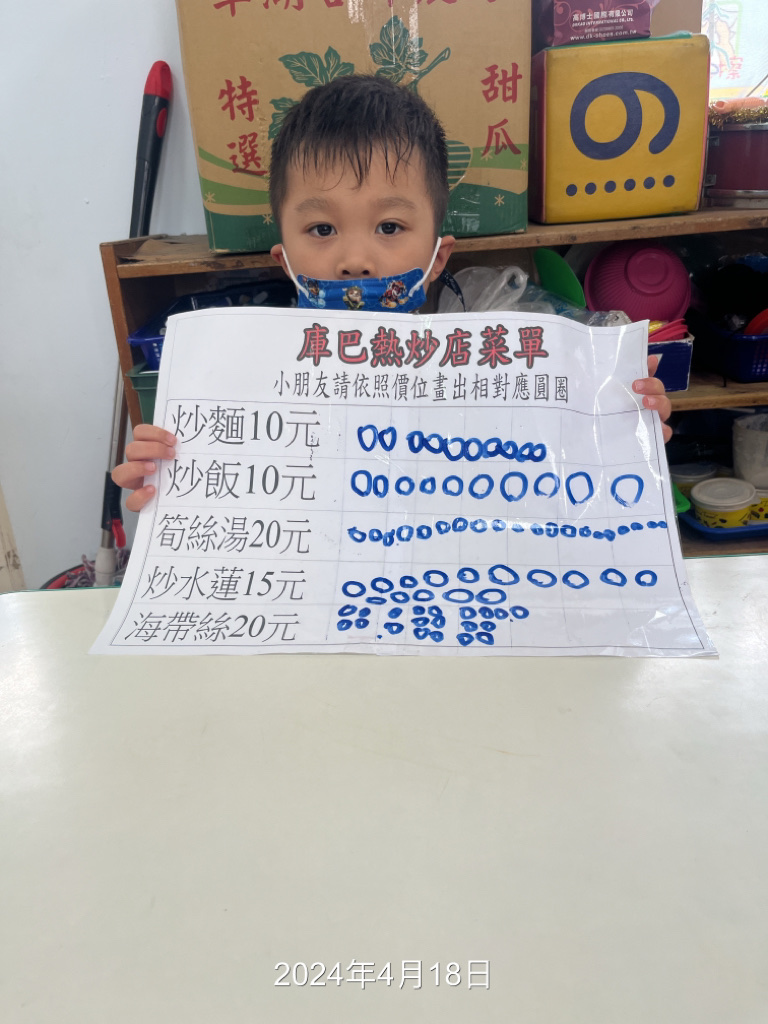 特選
甜瓜
高博士國際有限公司
www.dk-shoes.com.tw
6
擦
庫巴熱炒店菜單
小朋友請依照價位畫出相對應圓圈
炒麵10元
炒飯10元
筍絲湯20元
炒水蓮15元
海帶絲20元
2024年4月18日